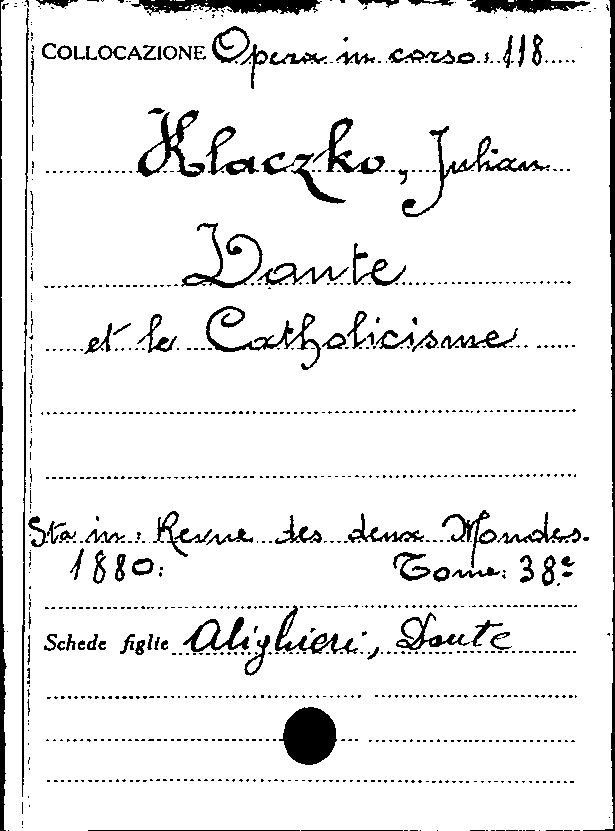 COLLOCAZIONE Opera in corso: 118
Klaczko, Julian
Dante
et le Catholicisme
Sta in: Revue des deux Mondes.
1880: Tome: 38e
Schede figlie Alighieri, Dante